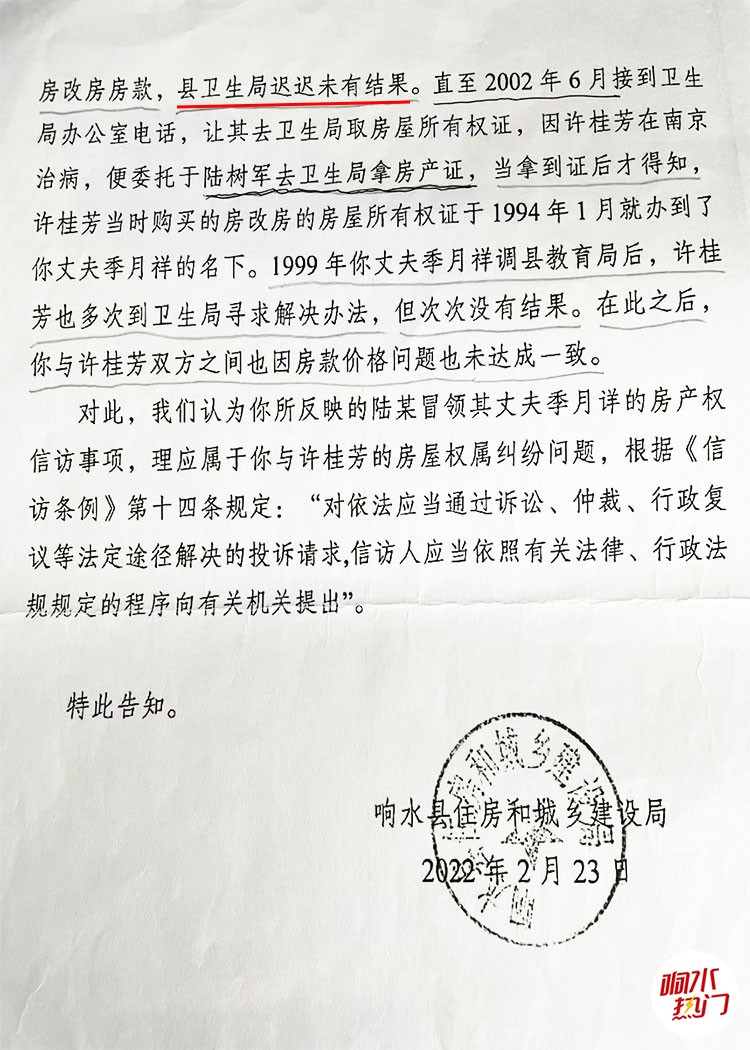 房改房房款，县卫生局迟迟未有结果。直至 2002 年 6 月接到卫生
局办公室电话，让其去卫生局取房屋所有权证，因许桂芳在南京
治病，便委托于陆树军去卫生局拿房产证，当拿到证后才得知，
许桂芳当时购买的房改房的房屋所有权证于 1994 年 1 月就办到了
你丈夫季月祥的名下。1999 年你丈夫季月祥调县教育局后，许桂
芳也多次到卫生局寻求解决办法，但次次没有结果。在此之后，
你与许桂芳双方之间也因房款价格问题也未达成一致。
对此，我们认为你所反映的陆某冒领其丈夫季月详的房产权
信访事项，理应属于你与许桂芳的房屋权属纠纷问题，根据《信
访条例》第十四条规定：“对依法应当通过诉讼、仲裁、行政复
议等法定途径解决的投诉请求,信访人应当依照有关法律、行政法
规规定的程序向有关机关提出”。
特此告知。
响水县住房和城乡建设局
2022 年 2 月 23 日
响水县住房和城乡建设局
响水
热门